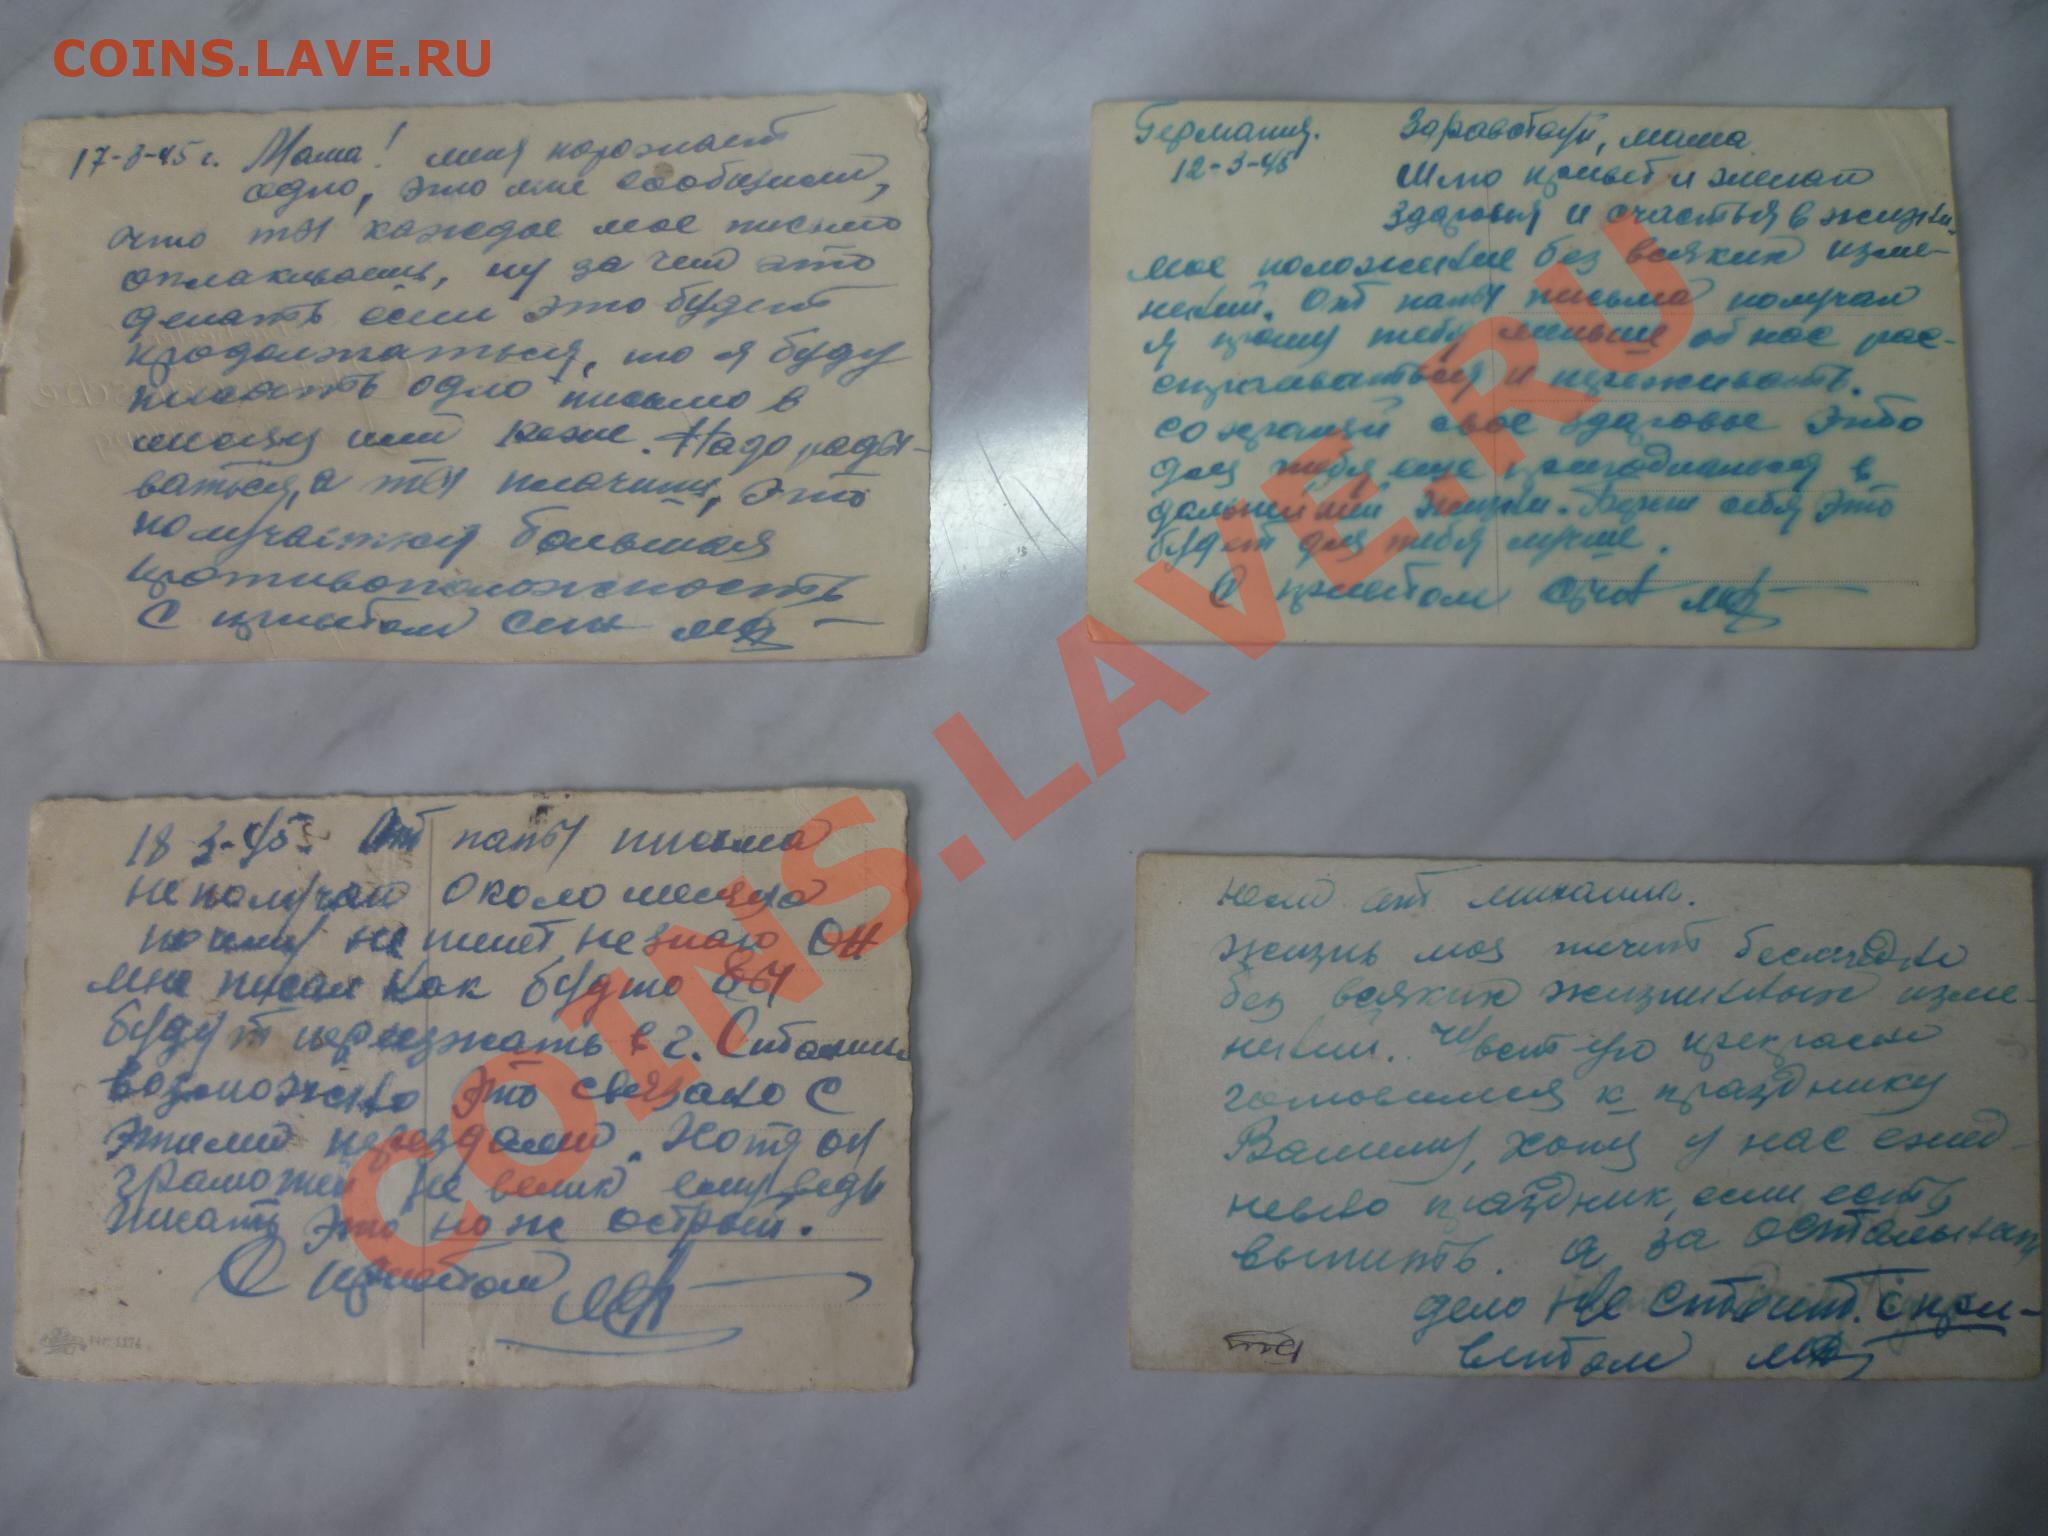 COINS.LAVE.RU
17-3-45 г. Мама! меня поражает
одно, это мне сообщили,
что ты каждое мое письмо
оплакиваешь, ну за чем это
делать если это будет
продолжаться, то я буду
писать одно письмо в
месяц или реже. Надо рады-
ваться, а ты плачешь, это
получается большая
противоположность
С приветом сын
Германия. Здравствуй, мама
12-3-45 Шлю привет и желаю
здоровья и счастья в жизни.
мое положение без всяких изме-
нений. От папы письма получал
я прошу тебя меньше об нас рас-
страиваться и переживать.
сохраняй свое здоровье это
для тебя еще пригодиться в
дальнейшей жизни. Береги себя это
будет для тебя лучше.
С приветом сын
18 3-45г. От папы письма
не получаю около месяца
почему не пишет не знаю он
мне писал как будто вы
будут переезжать в г. Сталин
возможно это связано с
этими переездами. Хотя он
грамотей не велик ему ведь
писать это нож острый.
С приветом
COINS.LAVE.RU
от михаила.
жизнь моя течет
без всяких жизненных изме-
нений. Чувствую прекрасно
готовимся к празднику
Вашему, хотя у нас ежед-
невно праздник, если есть
выпить. а за остальным
дело не стоит. С при-
ветом